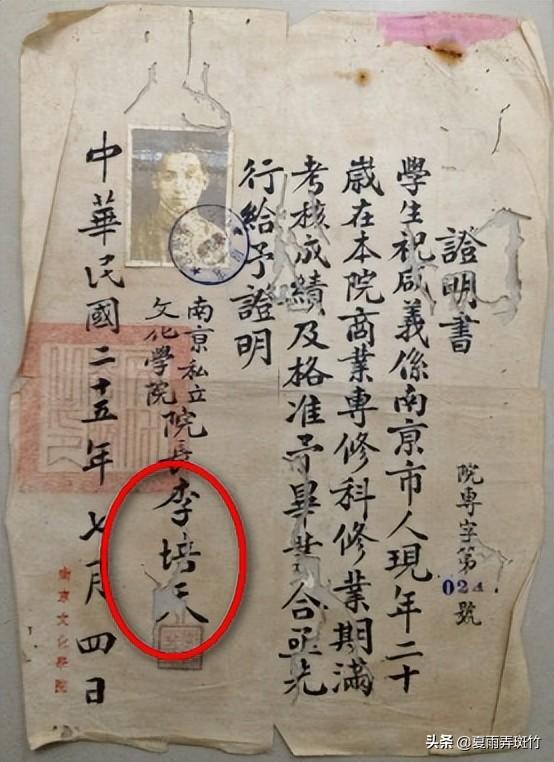 證明書
院專字第024號
學生祝咸義係南京市人現年二十
歲在本院商業專修科修業期滿
考核成績及格准予畢業合亟先
行給予證明
南京私立
文化學院
院長李培天
中華民國二十五年七月四日
南京文化學院
头条 @夏雨弄斑竹